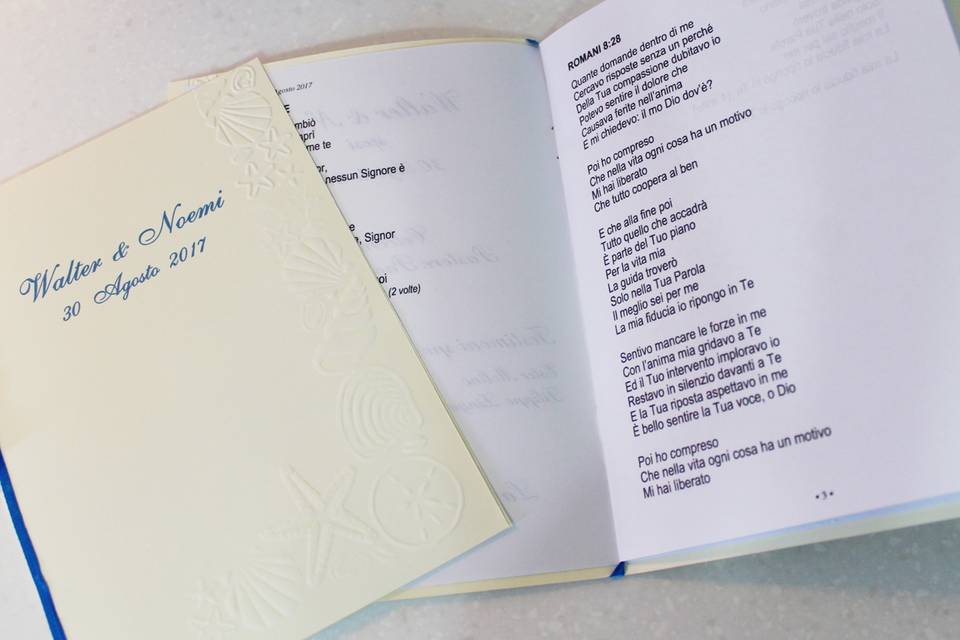 Walter & Noemi
30 Agosto 2017
agosto 2017
E
mbiò
apri
me te
or,
nessun Signore è
e
a, Signor
oi
(2 volte)
ROMANI 8:28
Quante domande dentro di me
Cercavo risposte senza un perché
Della Tua compassione dubitavo io
Potevo sentire il dolore che
Causava ferite nell'anima
E mi chiedevo: il mo Dio dov'è?
Poi ho compreso
Che nella vita ogni cosa ha un motivo
Mi hai liberato
Che tutto coopera al ben
E che alla fine poi
Tutto quello che accadrà
È parte del Tuo piano
Per la vita mia
La guida troverò
Solo nella Tua Parola
Il meglio sei per me
La mia fiducia io ripongo in Te
Sentivo mancare le forze in me
Con l'anima mia gridavo a Te
Ed il Tuo intervento imploravo io
Restavo in silenzio davanti a Te
E la Tua riposta aspettavo in me
È bello sentire la Tua voce, o Dio
Poi ho compreso
Che nella vita ogni cosa ha un motivo
Mi hai liberato
•3•